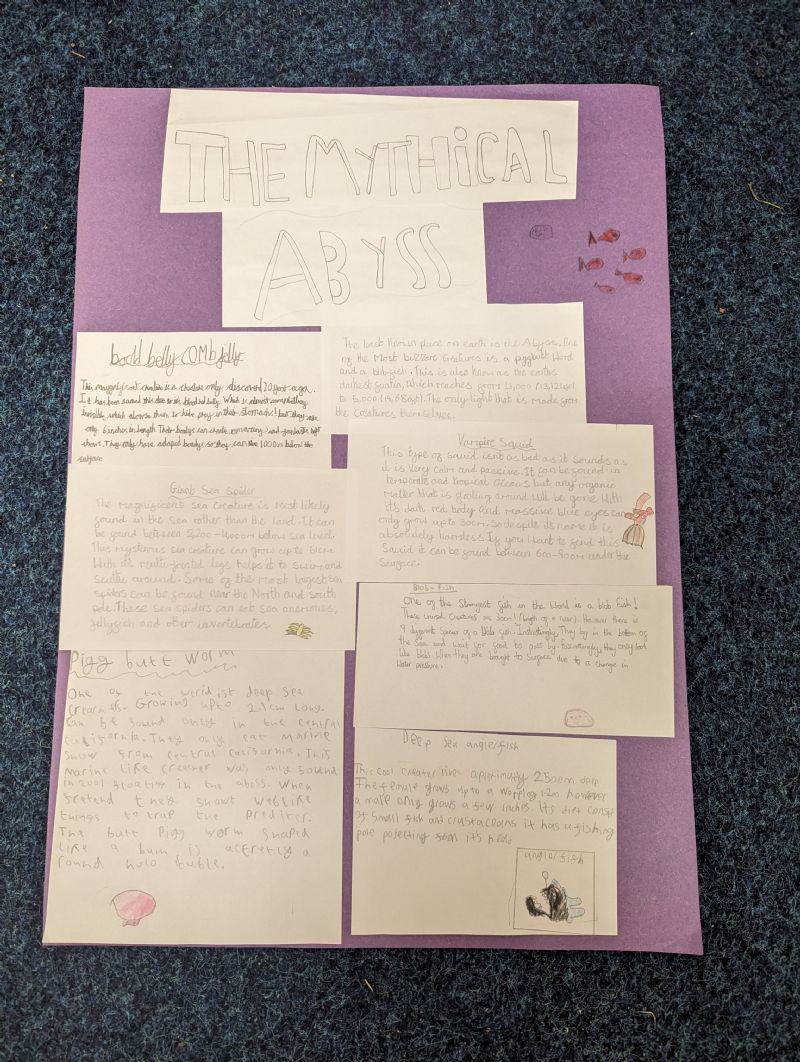 THE MYTHICAL
ABYSS
The last known place on earth is the Abyss. One
of the Most bizzere creatures is a piggbutt Word
and a blobfish. This is also known as the earths
darkest which reaches from
The only light that is made from
the creatures themselves.
belly COMb jelly
This creature is a creature only discoverd 20 years ago.
It has been named this due to its
invisible which alowse them to hide prey in their stomachs! but they are
only 6 inches in length. Their bodys can create amazing and fantastic light
shows. They only have adaped bodys so they can live 1000m below the
surface
Vampire Squid
This type of squid isnt as bad as it sounds as
it is very calm and passive. It can be found in
temperate and tropical oceans but any organic
matter that is floating around will be gone. With
its dark red body and massive blue eyes can
only grow upto 30cm. So despite its name it is
absolutely harmless. If you want to find this
Squid it can be found between 600-900m under the
surface.
Giant Sea Spider
The magnificent sea creature is most likely
found in the sea rather than the land. It can
be found between 2200-4000m below sea level.
This mysterius sea creature can grow up to
With its multi-jointed legs helps it to swim and
scuttle around. Some of the most largest sea
spiders can be found near the North and South
pole. These sea spiders can eat sea anemones,
jellyfish and other invertebrates.
Blob-Fish
One of the Strangest fish in the World is a blob Fish!
These unused creatures are 30cm! (length of a ruler). However there is
9 different Species of a Blob fish. Interestingly, They lay in the bottom of
the Sea and wait for food to pass by. they only look
like blobs when they are brought to surface due to a change in
Water pressure.
Pigg butt worm
One of the werid ist deep sea
Growing upto long.
Can be found only in the central
california. They only eat marine
snow from central california. This
marine like was only found
in 2001 floating in the abiss. When
they shout web like
things to trap the prediter.
The butt Pigg worm shaped
like a bum is a
round
Deep Sea anglerfish
This cool creater lives aproximatly deep
The female grows up to a however
a male only grows a few inches. Its diet
of small fish and crustaceans it has a fishing
pole pojecting from it's
anglerfish